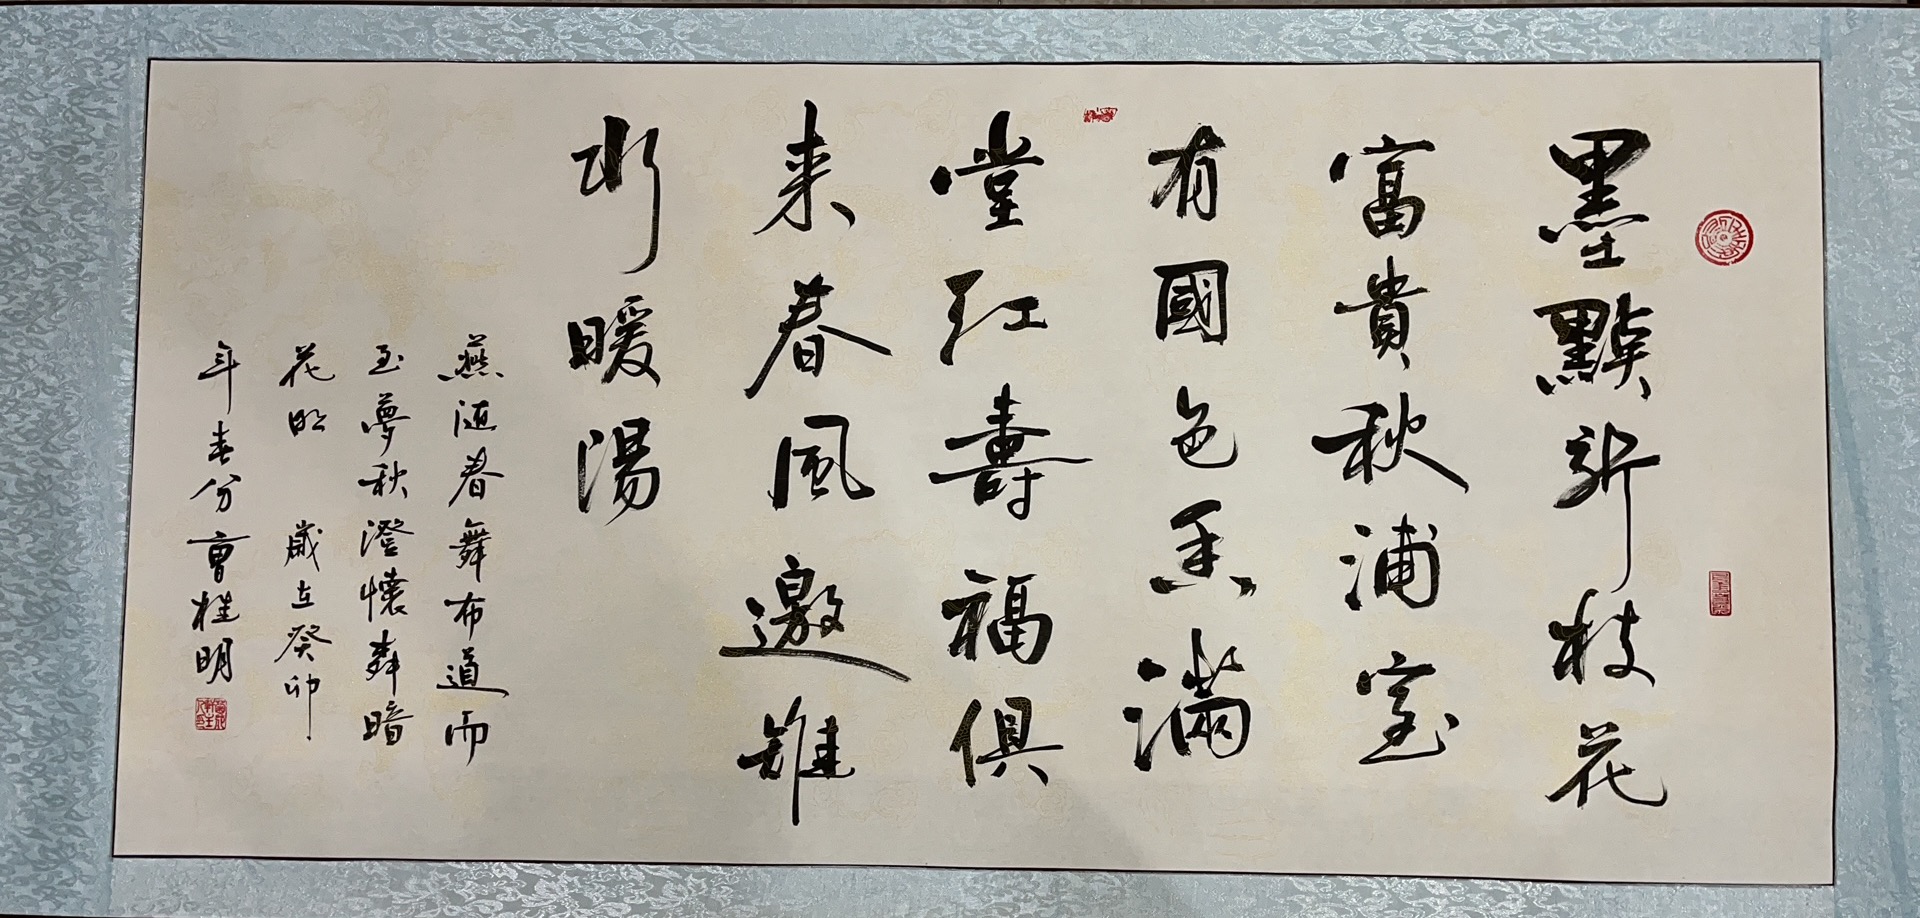 墨點新枝花
富貴秋浦室
有國色香滿
堂紅壽福俱
来春風邀雖
水暖湯
燕随春舞布道而
至夢秋澄懷舞暗
花明 歲在癸卯
年春分曹桂明